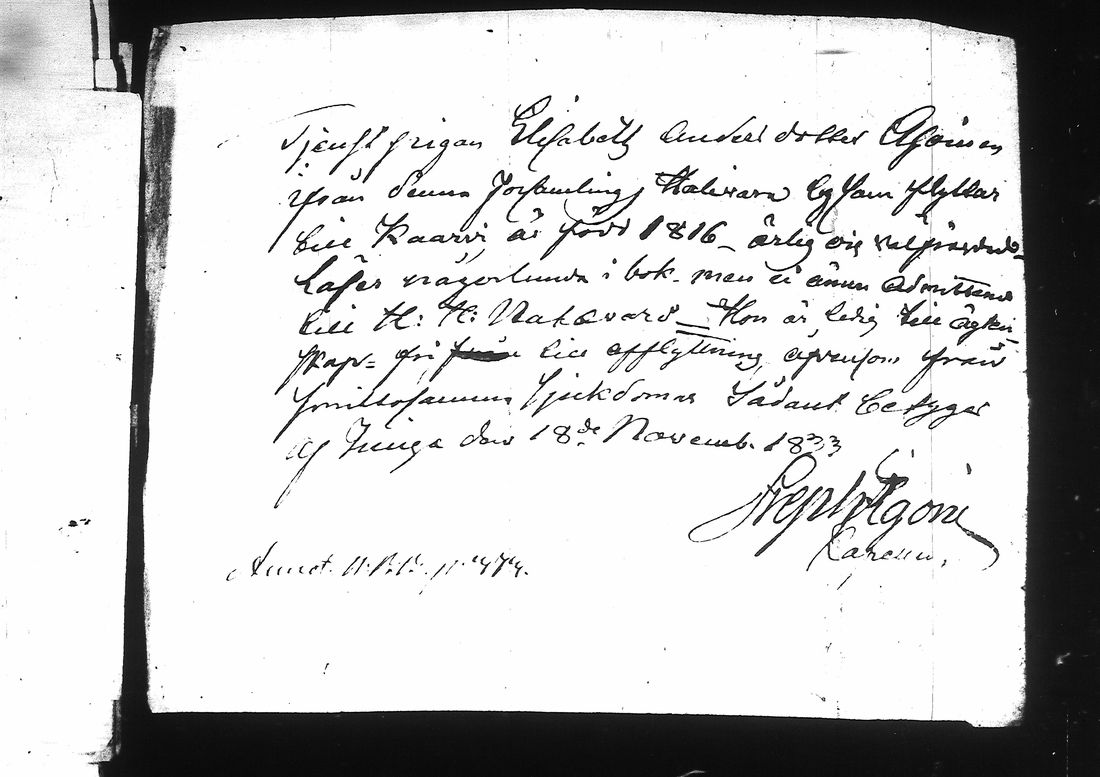 Tjenstpigan Elisabeth Andersdotter Asoinen
ifrån denna församlings Halivara by som flyttar
till Kaarvi, är född 1816 – ärlig och välfräjdad
Läser någorlunda i bok – men ei ännu admitterad
till H: H: Nattvard – Hon är ledig till ägten-
skap – fri till afflyttning, äfvensom från
smittosamma sjukdomar Sådant betygar
af Juuga den 18de Novemb. 1833
Steph.
Annot.